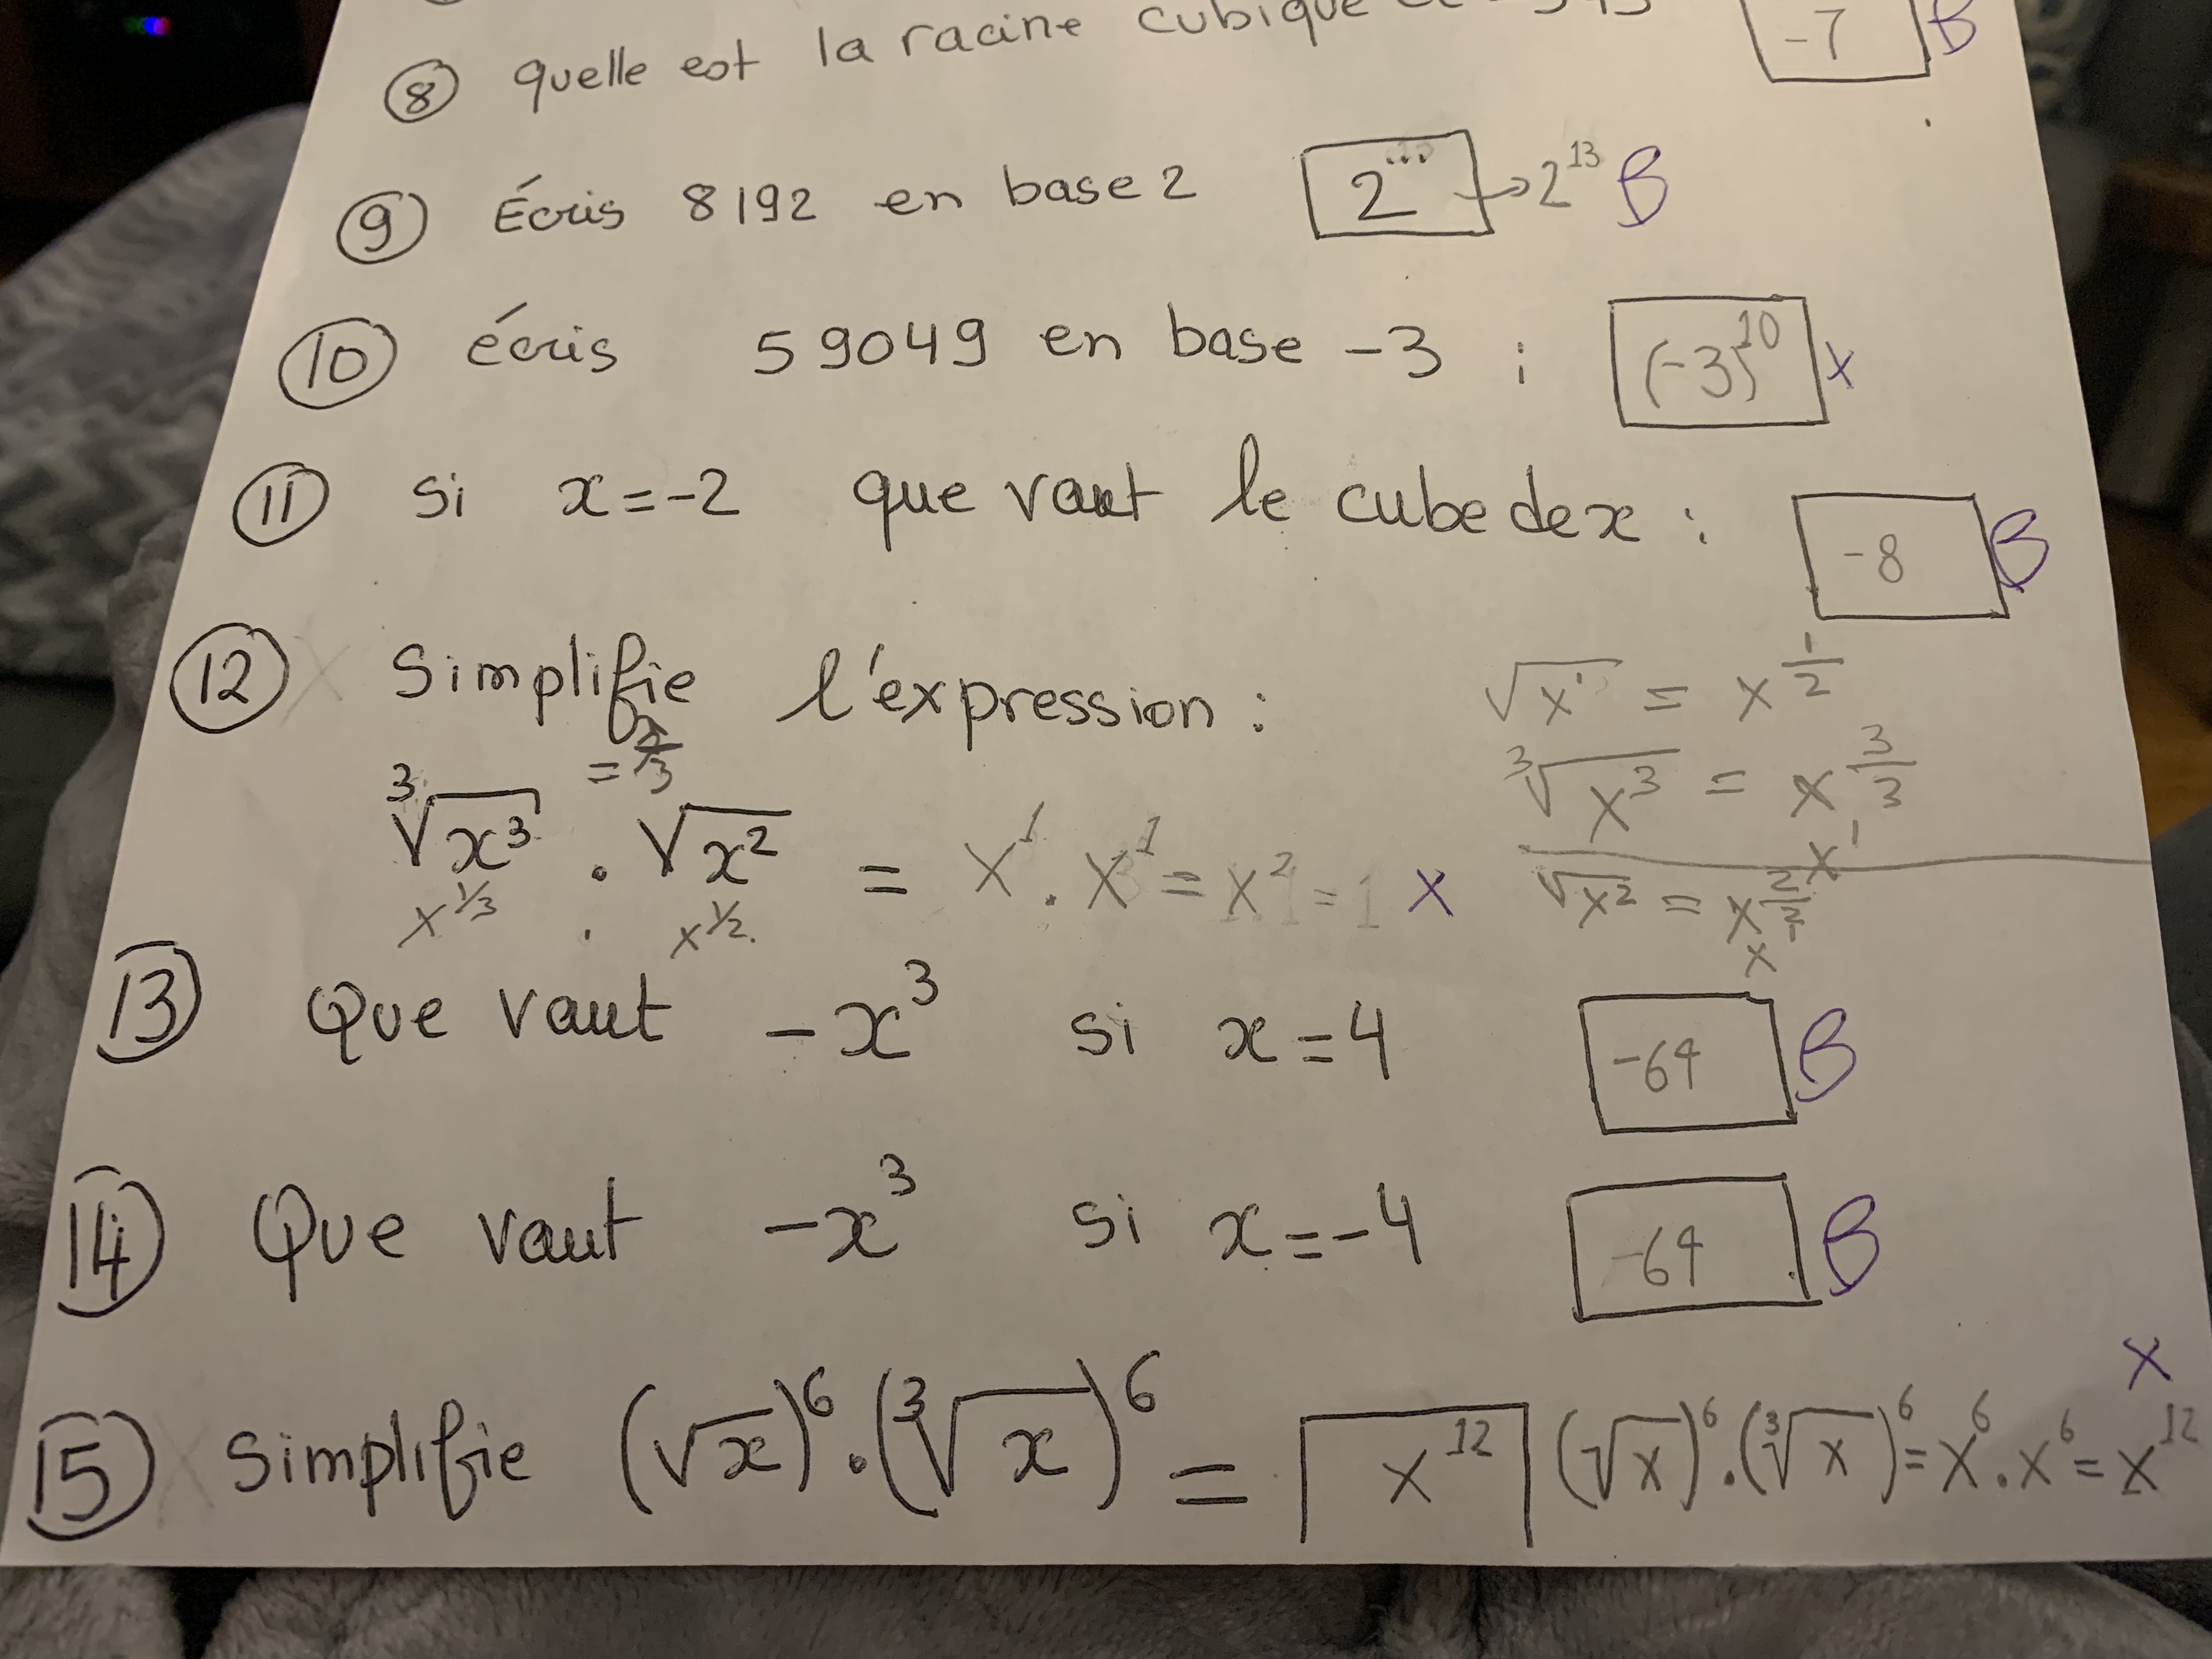 ⑧ quelle est la racine cubique -7 B
⑨ Écris 8192 en base 2 2^... → 2^13 B
⑩ écris 59049 en base -3 : (-3)^10 x
⑪ si x=-2 que vaut le cube de x : -8 B
⑫ x Simplifie l'expression :
√x^1 = x^(1/2)
∛x^3 = x^(3/3)
x^1
∛x^3 · √x^2 = x^1 · x^1 = x^2 = 1 x
√x^2 = x^(2/2)
x^1/3 · x^1/2
x
⑬ Que vaut -x^3 si x=4 -64 B
⑭ Que vaut -x^3 si x=-4 -64 B
x
⑮ x Simplifie (√x)^6 · (∛x)^6 = x^12 (√x)^6 · (∛x)^6 = x^6 · x^6 = x^12